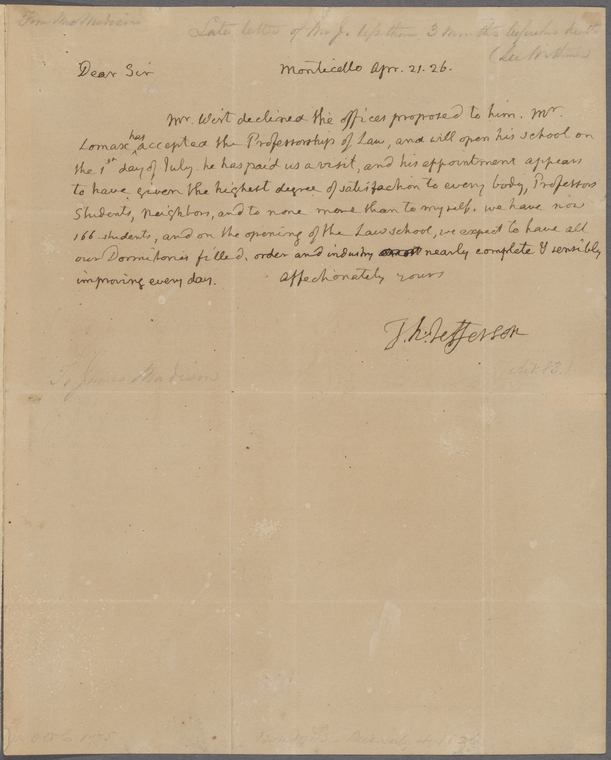 From Mrs Madison
Late letter of Mr J. less than 3 months before his death
Dear Sir Monticello Apr. 21. 26.
Mr. Wirt declined the offices proposed to him. Mr.
Lomax has accepted the Professorship of Law, and will open his school on
the 1st day of July. he has paid us a visit, and his appointment appears
to have given the highest degree of satisfaction to every body, Professors
Students, neighbors, and to none more than to myself. we have now
166 students, and on the opening of the Law school, we expect to have all
our Dormitories filled. order and industry nearly complete & sensibly
improving every day. affectionately yours
Th: Jefferson
To James Madison